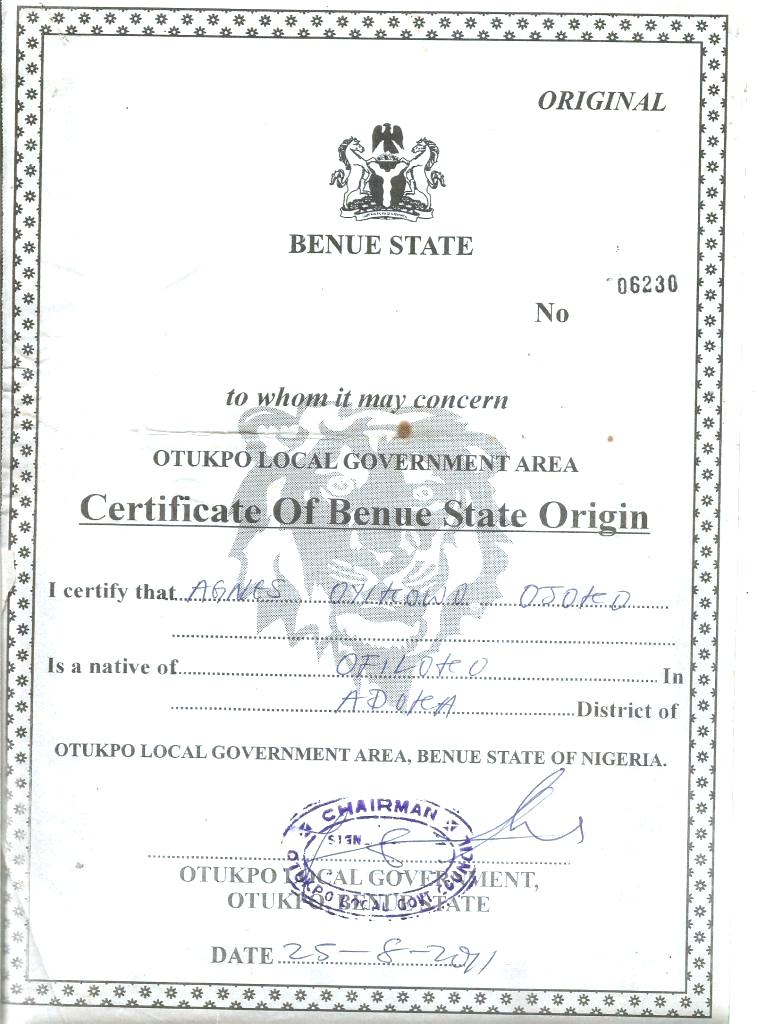 ORIGINAL
BENUE STATE
06230
No
to whom it may concern
OTUKPO LOCAL GOVERNMENT AREA
Certificate Of Benue State Origin
I certify that AGNES OYIKOWO OJOKO
Is a native of OFILOKO In
ADOKA District of
OTUKPO LOCAL GOVERNMENT AREA, BENUE STATE OF NIGERIA.
CHAIRMAN
SIGN
OTUKPO LOCAL GOVT. COUNCIL
OTUKPO LOCAL GOVERNMENT,
OTUKPO BENUE STATE
DATE 25-8-2011